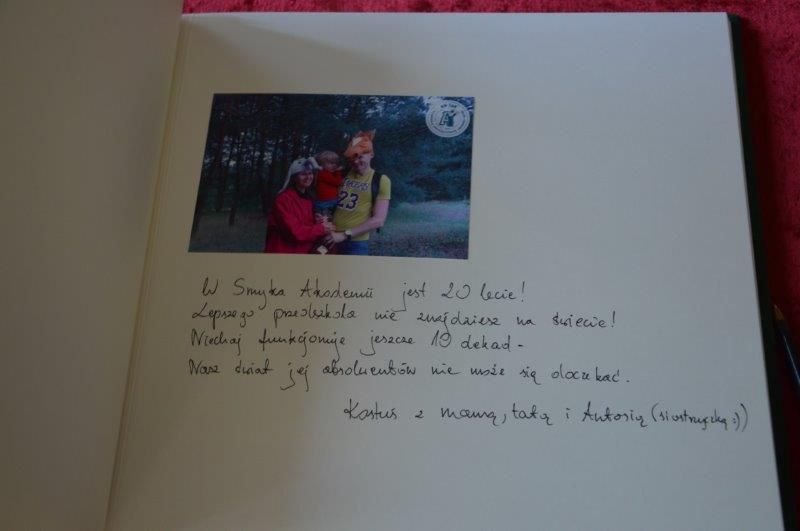 23
W Smyka Akademii jest 20 lecie!
Lepszego przedszkola nie znajdziesz na świecie!
Niechaj funkcjonuje jeszcze 10 dekad -
Nasz świat jej absolwentów nie może się doczekać.
Kostuś z mamą, tatą i Antosią (siostrzyczką :))